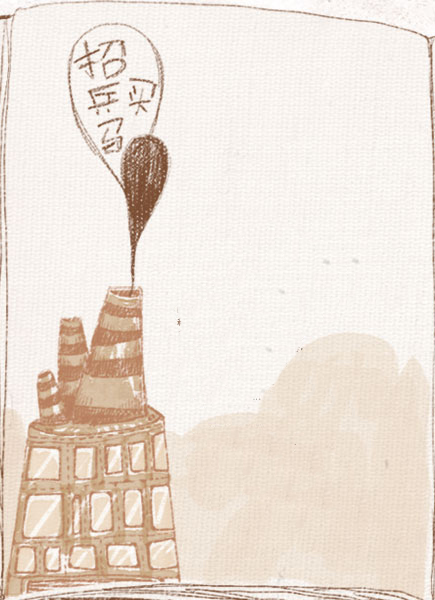 招
兵买
马